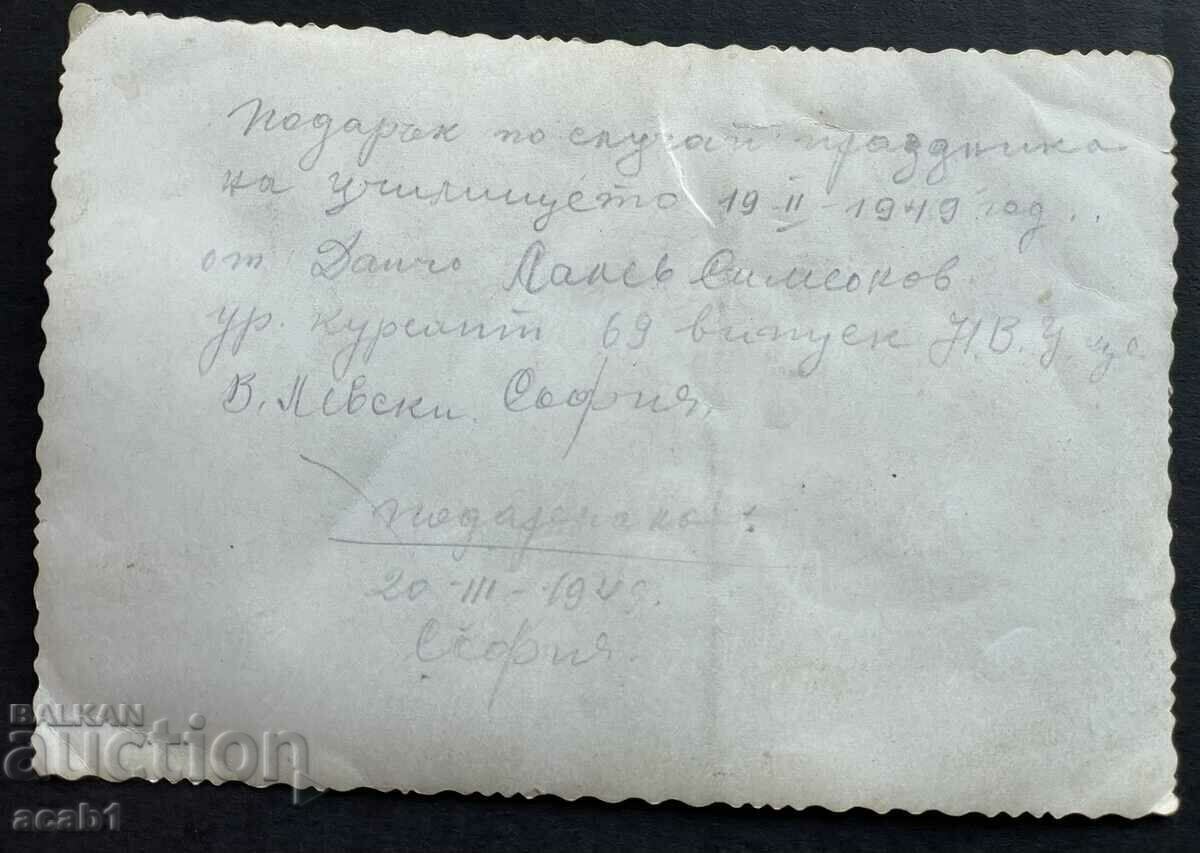 Подарък по случай праздника
на училището 19-II-1949 год..
от Данчо Симеонов.
ур. курсант 69 випуск Н.В.У.
В. Левски. София.
20-III-1949.
София.
BALKAN
auction
acab1